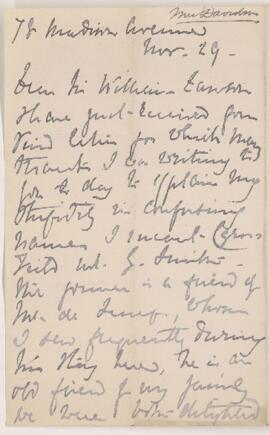 Mrs Davidson
78 Madison Avenue
Nov. 29.
Dear Sir William Dawson
I have just received your
kind letter for which many
thanks I was writing to
you to day to explain my
stupidity in confusing
names I meant Cross
field not G. Smith.
The former is a friend of
Mr. de, whom
I saw frequently during
his stay here, he is an
old friend of my family
we were both delighted